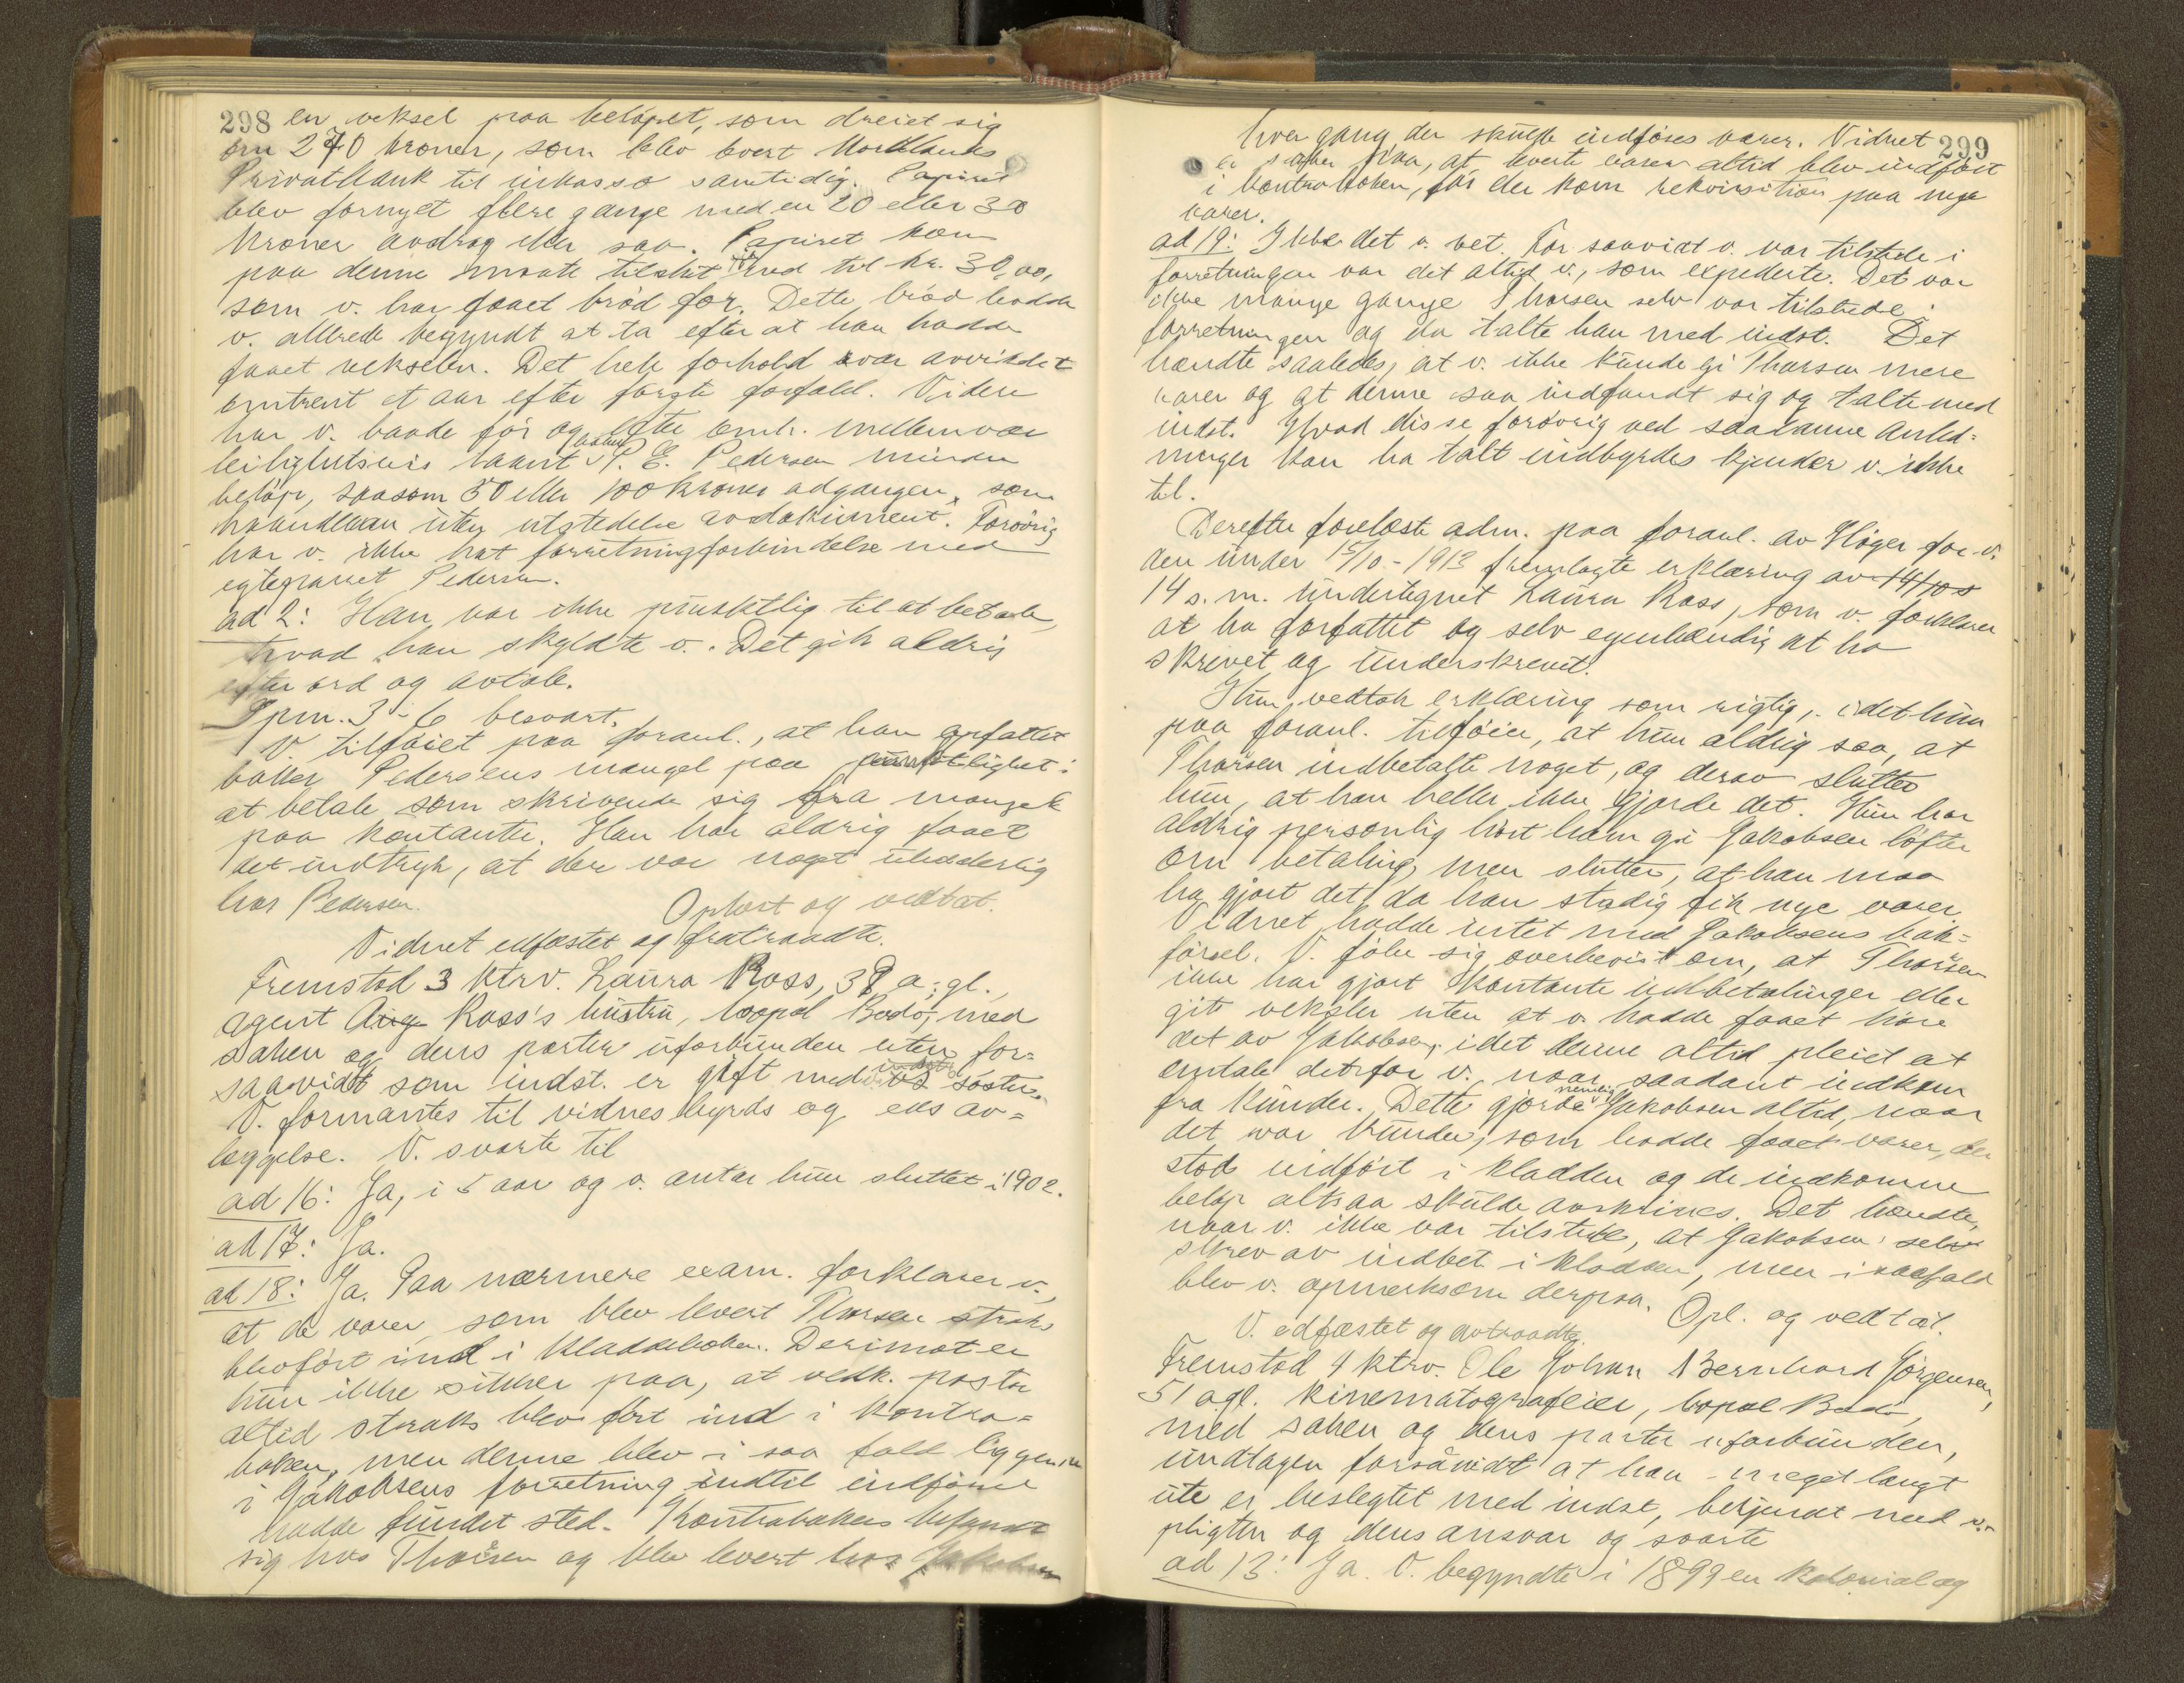 298 en veksel paa beløpet, som dreiet sig
om 270 kroner, som blev levert Nordlands
Privatbank til inkasso samtidig. Papiret
blev fornyet flere gange med en 20 eller 30
kroner avdrag eller saa. Papiret kom
paa denne maate tilslut ned til kr. 30,00,
som v. har faaet brød for. Dette brød hadde
v. allerede begyndt at ta efter at han hadde
faaet vekselen. Det hele forhold var avviklet
omtrent et aar efter første forfald. Videre
har v. baade før og efter omh. mellemvær
leilighetsvis laant baker P. E. Pedersen mindre
beløp, saasom 50 eller 100 kroner adgangen, som
haandlaan uten utstedelse av dokument. Forøvrig
har v. ikke hat forretningsforbindelse med
egteparret Pedersen.
ad 2: Han var ikke punktlig til at betale,
hvad han skyldte v. Det gik aldrig
efter ord og avtale.
Spm. 3-6 besvart.
V. tilføiet paa foranl., at han opfattet
baker Pedersens mangel paa punktlighet i
at betale som skrivende sig fra mangel
paa kontanter. Han har aldrig faaet
det indtryk, at der var noget uhæderlig
hos Pedersen. Oplæst og vedtat.
Vidnet edfæstet og fratraadte.
Fremstod 3 ktrv. Laura Koss, 38 a. gl.,
agent Aug Koss's hustru, bopæl Bodø, med
saken og dens parter uforbunden uten for-
saavidt som indst. er gift med v's søster.
V. formantes til vidnesbyrds og eds av-
læggelse. V. svarte til
ad 16: Ja, i 5 aar og v. antar hun sluttet i 1902.
ad 17: Ja.
ad 18: Ja. Paa nærmere exam. forklarer v.,
at de varer, som blev levert Thorsen straks
blev ført ind i kladdeboken. Derimot er
hun ikke sikker paa, at vedk. poster
altid straks blev ført ind i kontra-
boken, men denne blev i saa fald liggende
i Jakobsens forretning indtil indførsel
hadde fundet sted. Kontraboken befandt
sig hos Thorsen og blev levert hos Jakobsen
299
hver gang der skulde indføres varer. Vidnet
er sikker paa, at leverte varer altid blev indført
i kontraboken, før der kom rekvisition paa nye
varer.
ad 19: Ikke det v. vet. For saavidt v. var tilstede i
forretningen var det altid v., som expederte. Det var
ikke mange gange Thorsen selv var tilstede i
forretningen og da talte han med indst. Det
hændte saaledes, at v. ikke kunde gi Thorsen mere
varer og at denne saa indfandt sig og talte med
indst. Hvad disse forøvrig ved saadanne anled-
ninger kan ha talt indbyrdes kjender v. ikke
til.
Derefter forelæste adm. paa foranl. av Høyer for v.
den under 15/10-1913 fremlagte erklæring av 14/10 s
14 s.m. undertegnet Laura Koss, som v. forklarer
at ha forfattet og selv egenhændig at ha
skrevet og underskrevet.
Hun vedtok erklæring som rigtig, idet hun
paa foranl. tilføier, at hun aldrig saa, at
Thorsen indbetalte noget, og derav slutter
hun, at han heller ikke gjorde det. Hun har
aldrig personlig hørt ham gi Jakobsen løfter
om betaling, men slutter, at han maa
ha gjort det, da han stadig fik nye varer.
Vidnet hadde intet med Jakobsens bok-
førsel. V. føler sig overbevist om, at Thorsen
ikke har gjort kontante indbetalinger eller
git veksler uten at v. hadde faaet høre
det av Jakobsen, idet denne altid pleiet at
omtale det for v. naar saadant indkom
fra kunder. Dette gjorde nemlig Jakobsen altid, naar
det var kunder, som hadde faaet varer, der
stod indført i kladden og de indkomne
beløp altsaa skulde avskrives. Det hændte,
naar v. ikke var tilstede, at Jakobsen selv
skrev av indbet i kladden, men i saafald
blev v. opmerksom derpaa. Opl. og vedtat.
V. edfæstet og avtraadte.
Fremstod 4 ktrv. Ole Johan Bernhard Jørgensen,
51 a gl. kinematografeier, bopæl Bodø,
med saken og dens parter uforbunden,
undtagen forsåvidt at han meget langt
ute er beslegtet med indst, bekjendt med v.
pligten og dens ansvar og svarte
ad 13: Ja. V. begyndte i 1899 en kolonial og